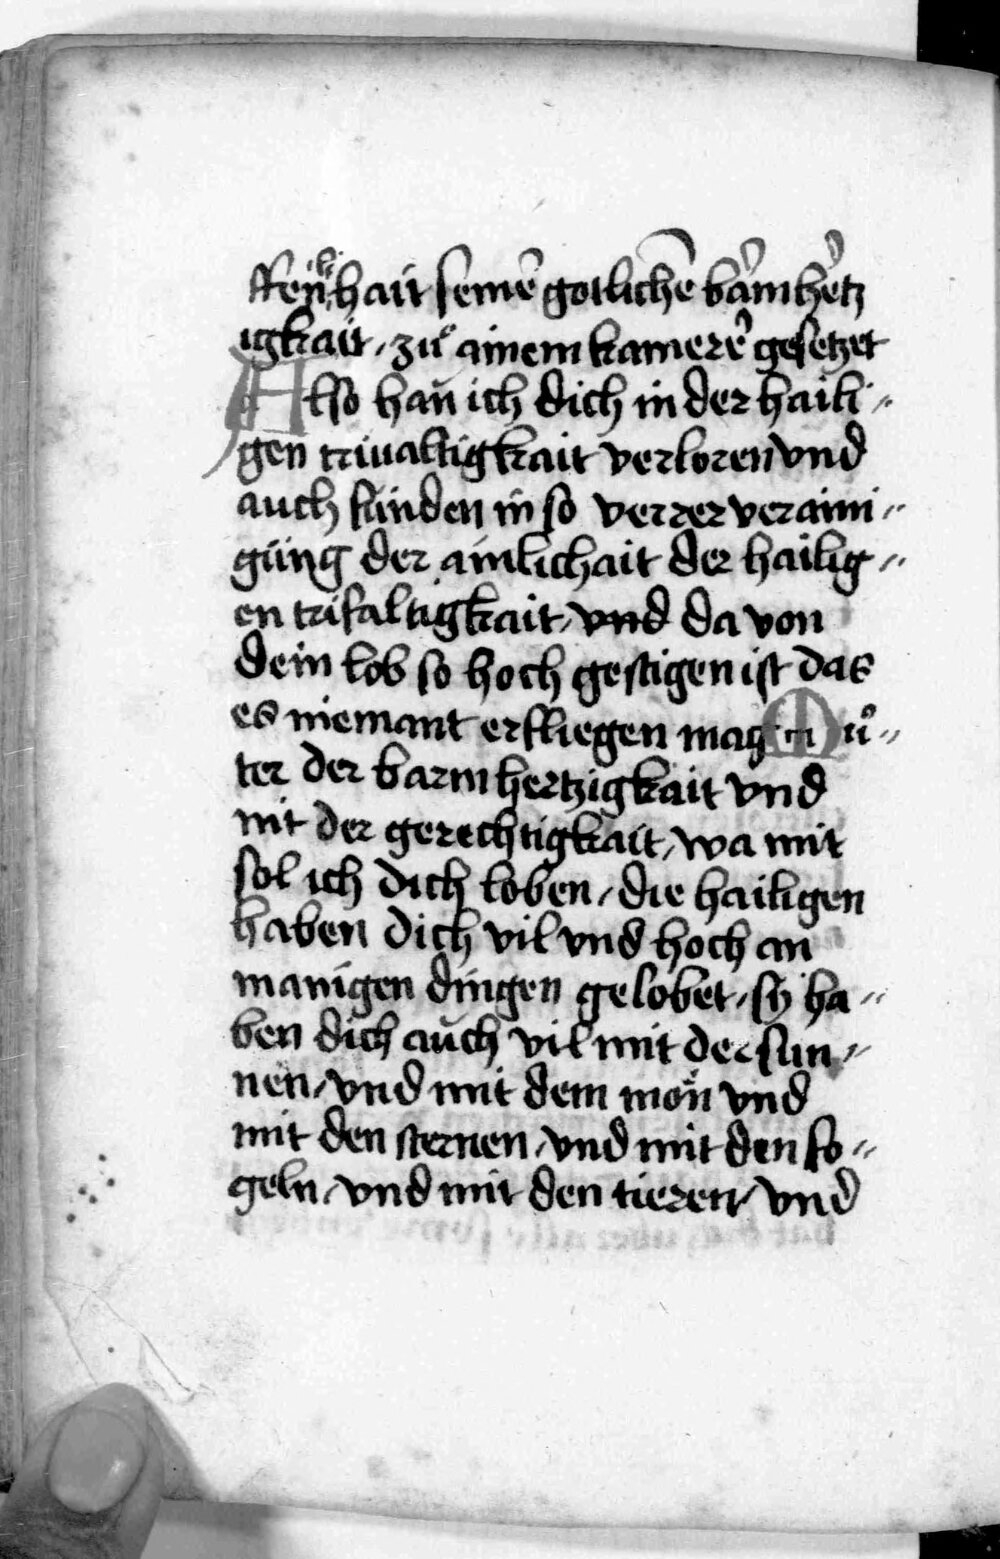 ffen lichait seinē gotlichē barmhertz
igkait / zů ainem kamerer gesetzet
Also han ich dich in der haili //
gen triualtigkait verloren vnd
auch funden in so verrer veraini //
gung der ainlichait der hailig //
en trifaltigkait / vnd da von
dein lob so hoch gestigen ist das
es niemant erfliegen mag Mů //
ter der barmhertzigkait vnd
nit der gerechtigkait / wa mit
sol ich dich loben / die hailigen
haben dich vil vnd hoch an
manigen dingen gelobet / sy ha //
ben dich auch vil mit der sun //
nen / vnd mit dem mon vnd
mit den sternen / vnd mit den fo //
geln / vnd mit den tieren / vnd